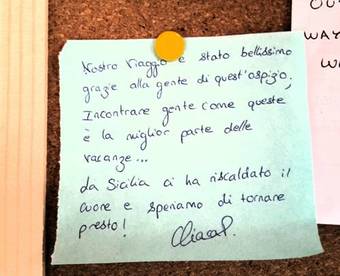 Nostro viaggio è stato bellissimo
grazie alla gente di quest'ospizio,
Incontrare gente come queste
è la miglior parte delle
vacanze...
La Sicilia ci ha riscaldato il
cuore e speriamo di tornare
presto!
Chiara P.
OU
WAY
W